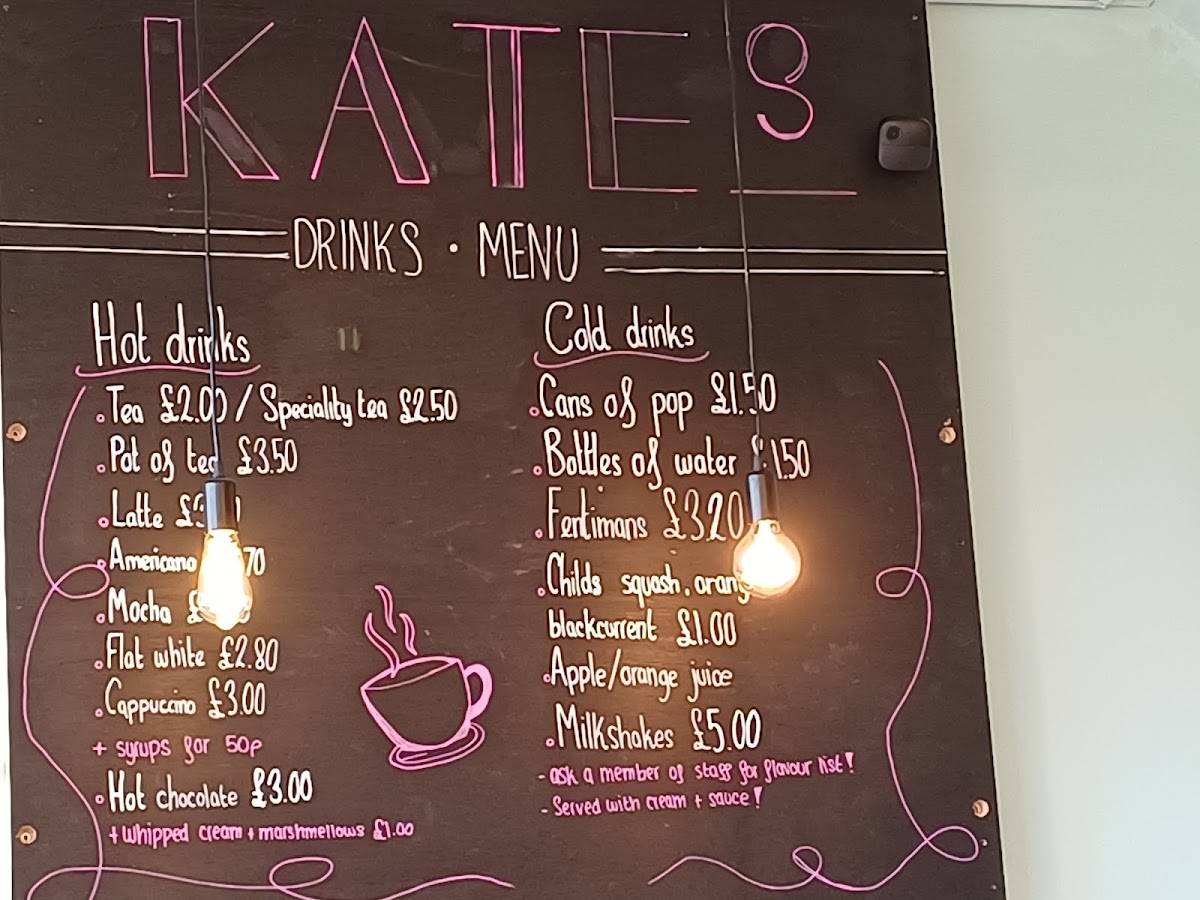 KATES
DRINKS • MENU
Hot drinks
Tea £2.00 / Speciality tea £2.50
Pot of tea £3.50
Latte
Americano
Mocha
Flat white £2.80
Cappuccino £3.00
+ syrups for 50p
Hot chocolate £3.00
+ whipped cream + marshmellows £1.00
Cold drinks
Cans of pop £1.50
Bottles of water £1.50
Fentimans £3.20
Childs squash, orange
blackcurrent £1.00
Apple/orange juice
Milkshakes £5.00
- ask a member of staff for flavour list!
- Served with cream + sauce!